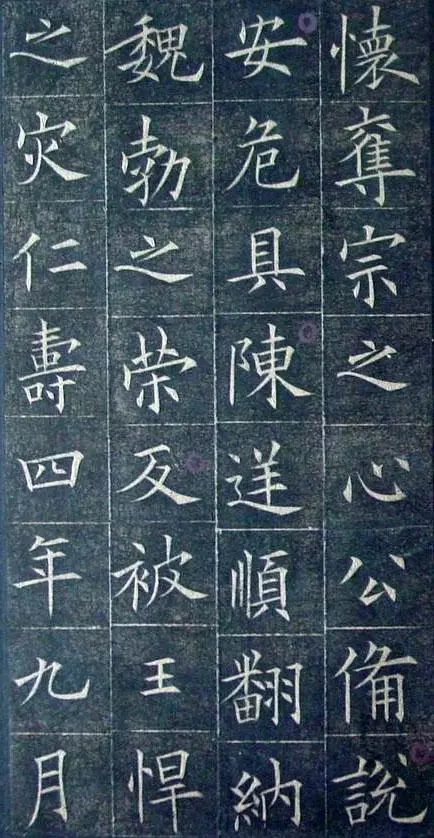 懷奪宗之心公俻說
安危具陳逆順翻納
魏勃之榮反被王悍
之灾仁壽四年九月